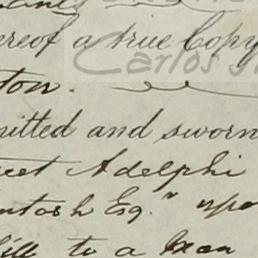 ereof a true Copy
Carlos
ton.
mitted and sworn
eet Adelphi
ntosh Esq.r upo
to a